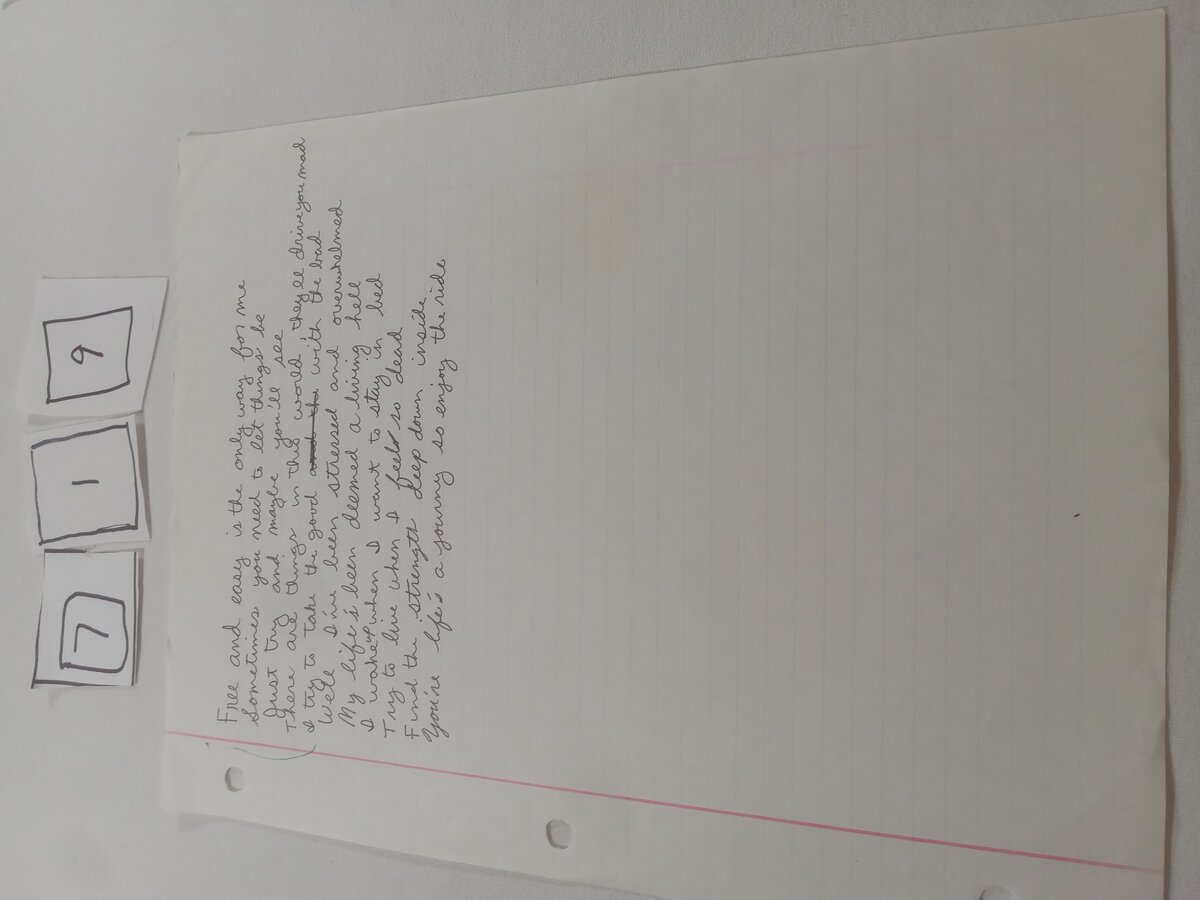 7 1 9
Free and easy is the only way for me
Sometimes you need to let things be
Just try and maybe you'll see
There are things in this world, they'll drive you mad
I try to take the good and the with the bad
Well I've been stressed and overwhelmed
My life's been deemed a living hell
I wake up when I want to stay in bed
Try to live when I feel so dead
Find the strength deep down inside
You're life's a journy so enjoy the ride